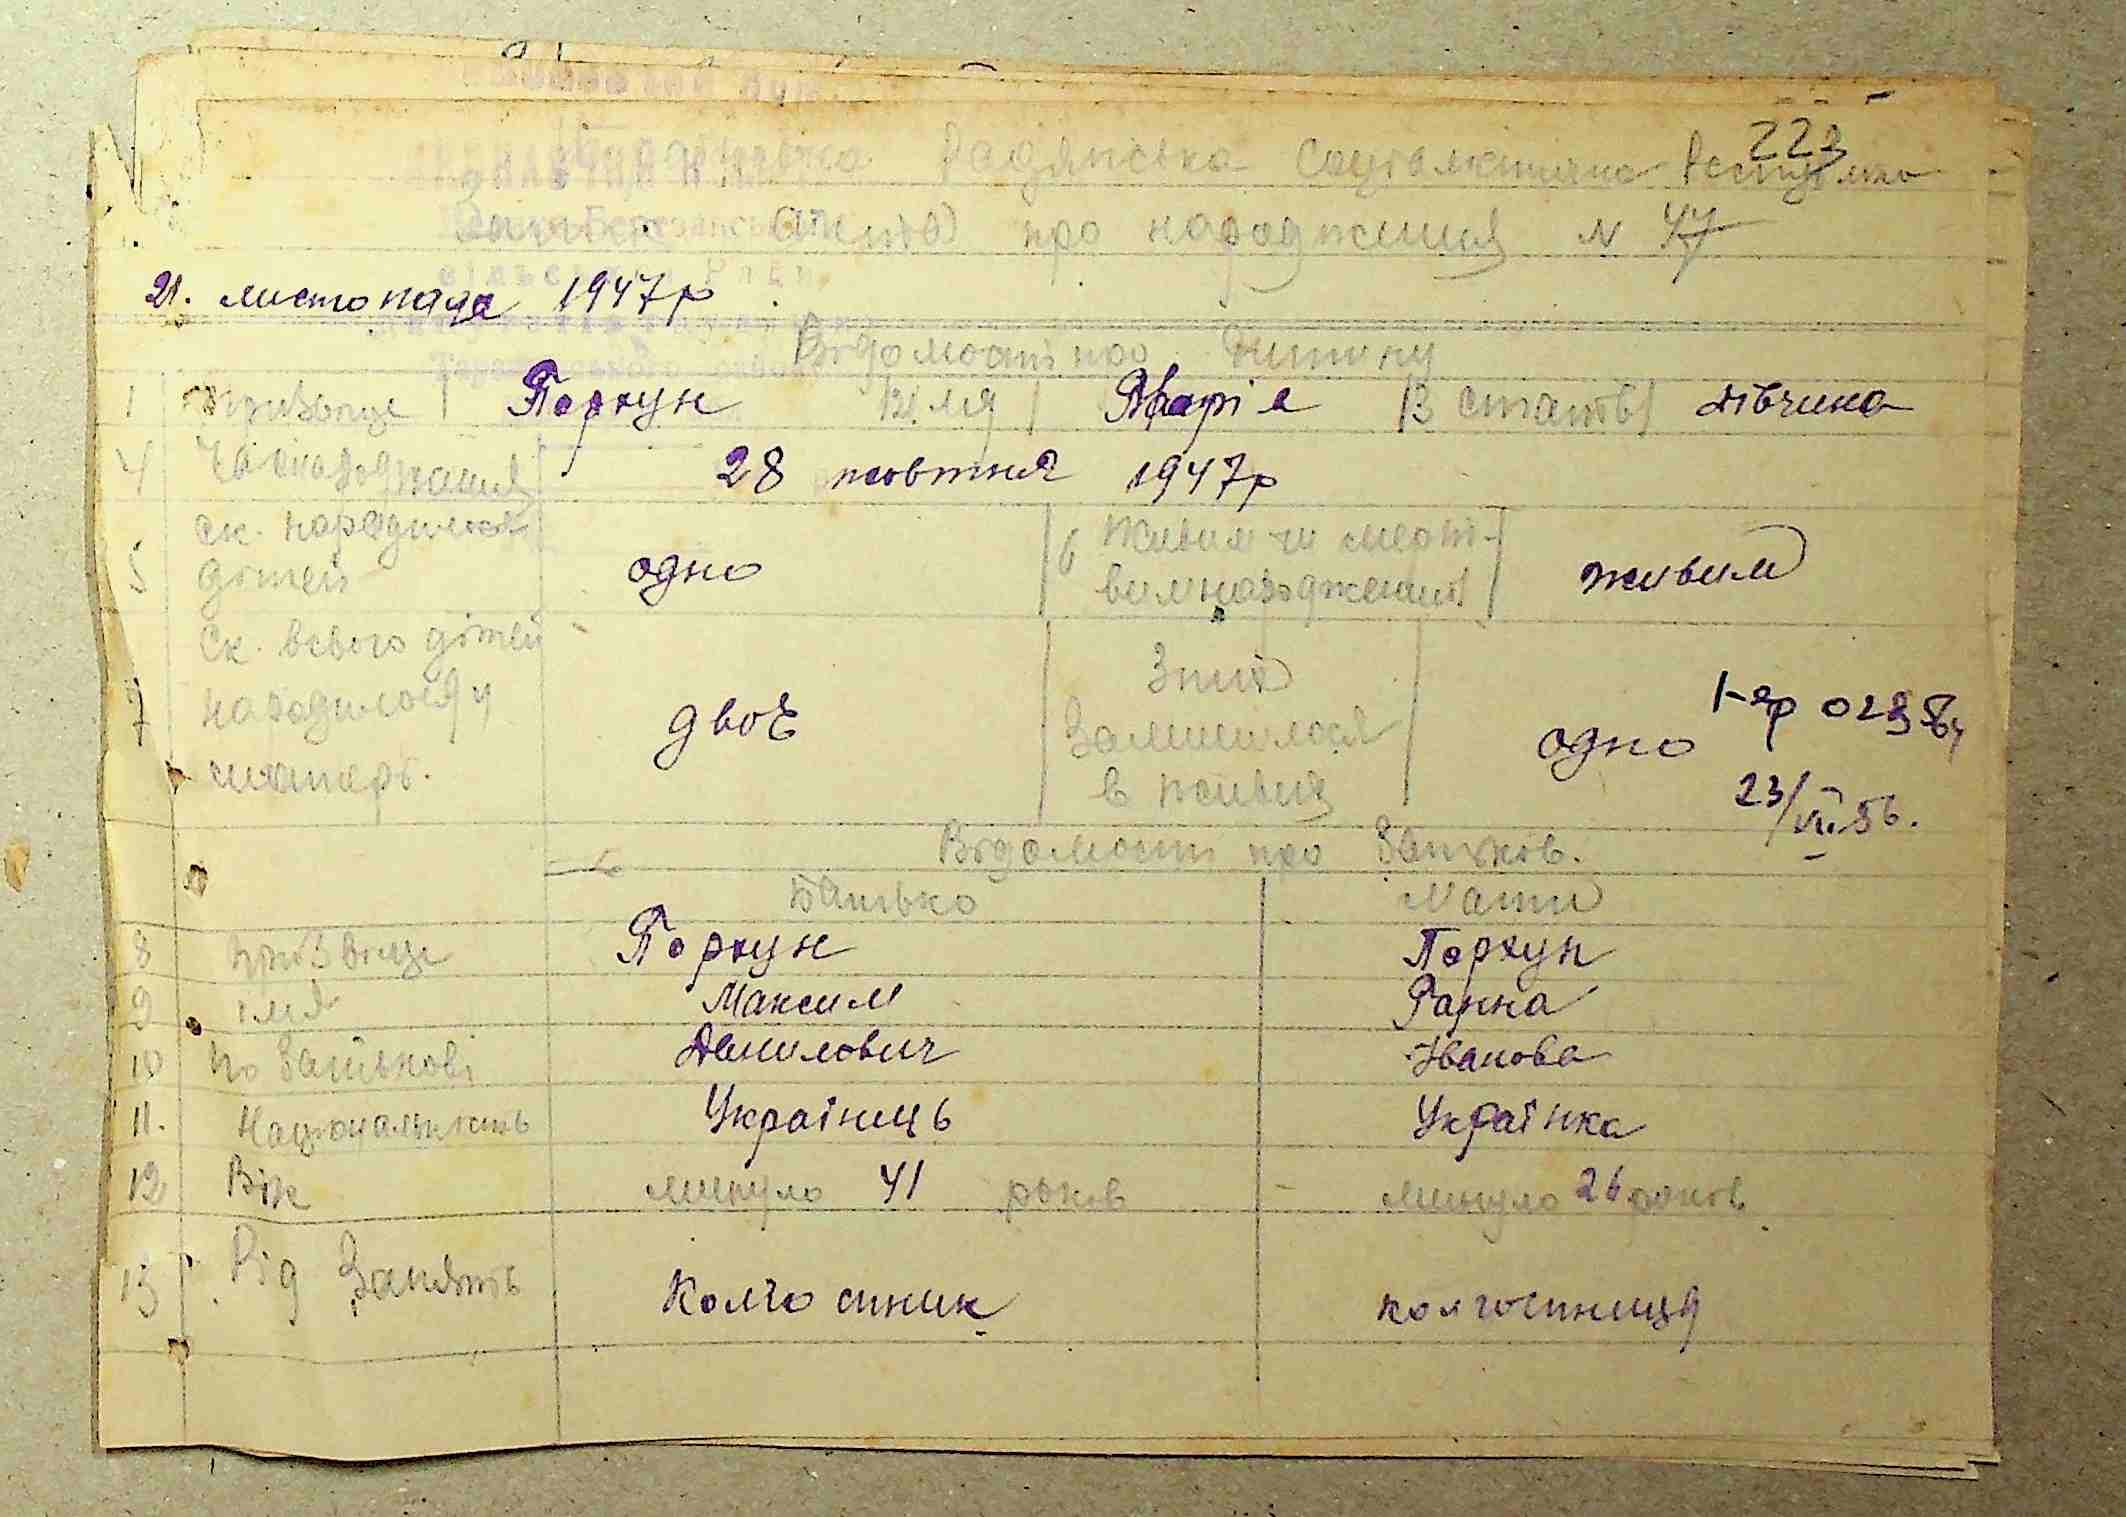 223
Радянська Соціалістична Республіка
про народження N 47
21. листопада 1947р
Відомості про дитину
1 Прізвище Порхун |2| імя | Марія |3 стать| дівчина
4 Час народження 28 жовтня 1947р
5 ск. народилося дітей одно 6 Живим чи мертвим народжений живим
7 Ск. всього дітей народилося у матері. двоє З них залишилося в живих одно
23/VII.56.
Відомості про батьків.
Батько Мати
8 Прізвище Порхун Порхун
9 імя Максим Ганна
10 по батькові Данилович Іванова
11. Національність Українець Українка
12 Вік минуло 41 років минуло 26 років
13 Рід занять Колгоспник колгоспниця